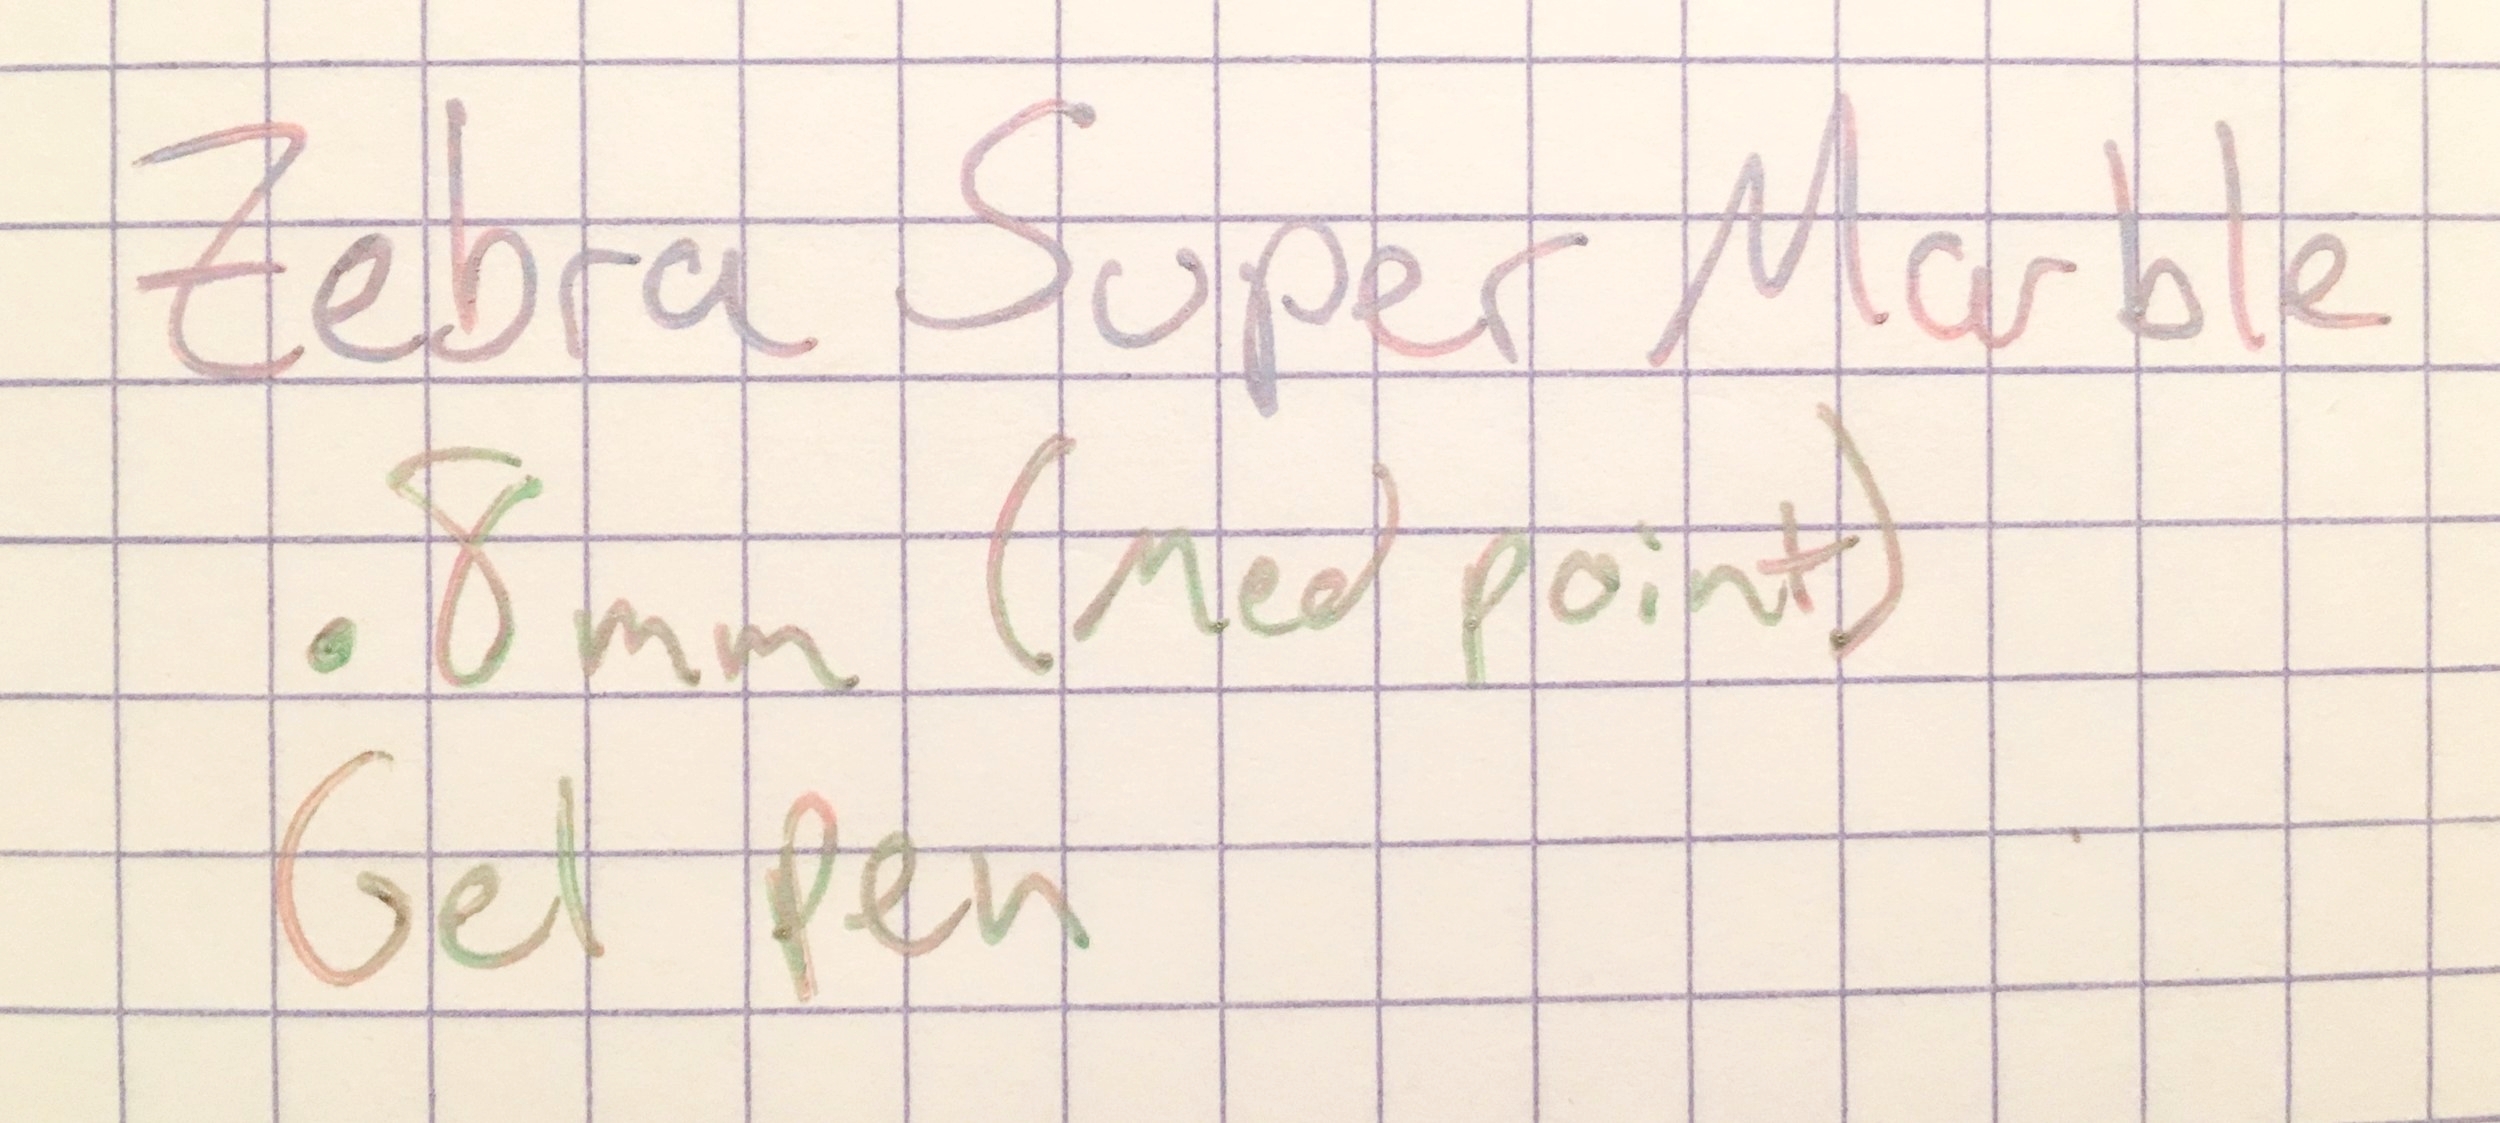 Zebra Super Marble
.8mm (Med point)
Gel pen